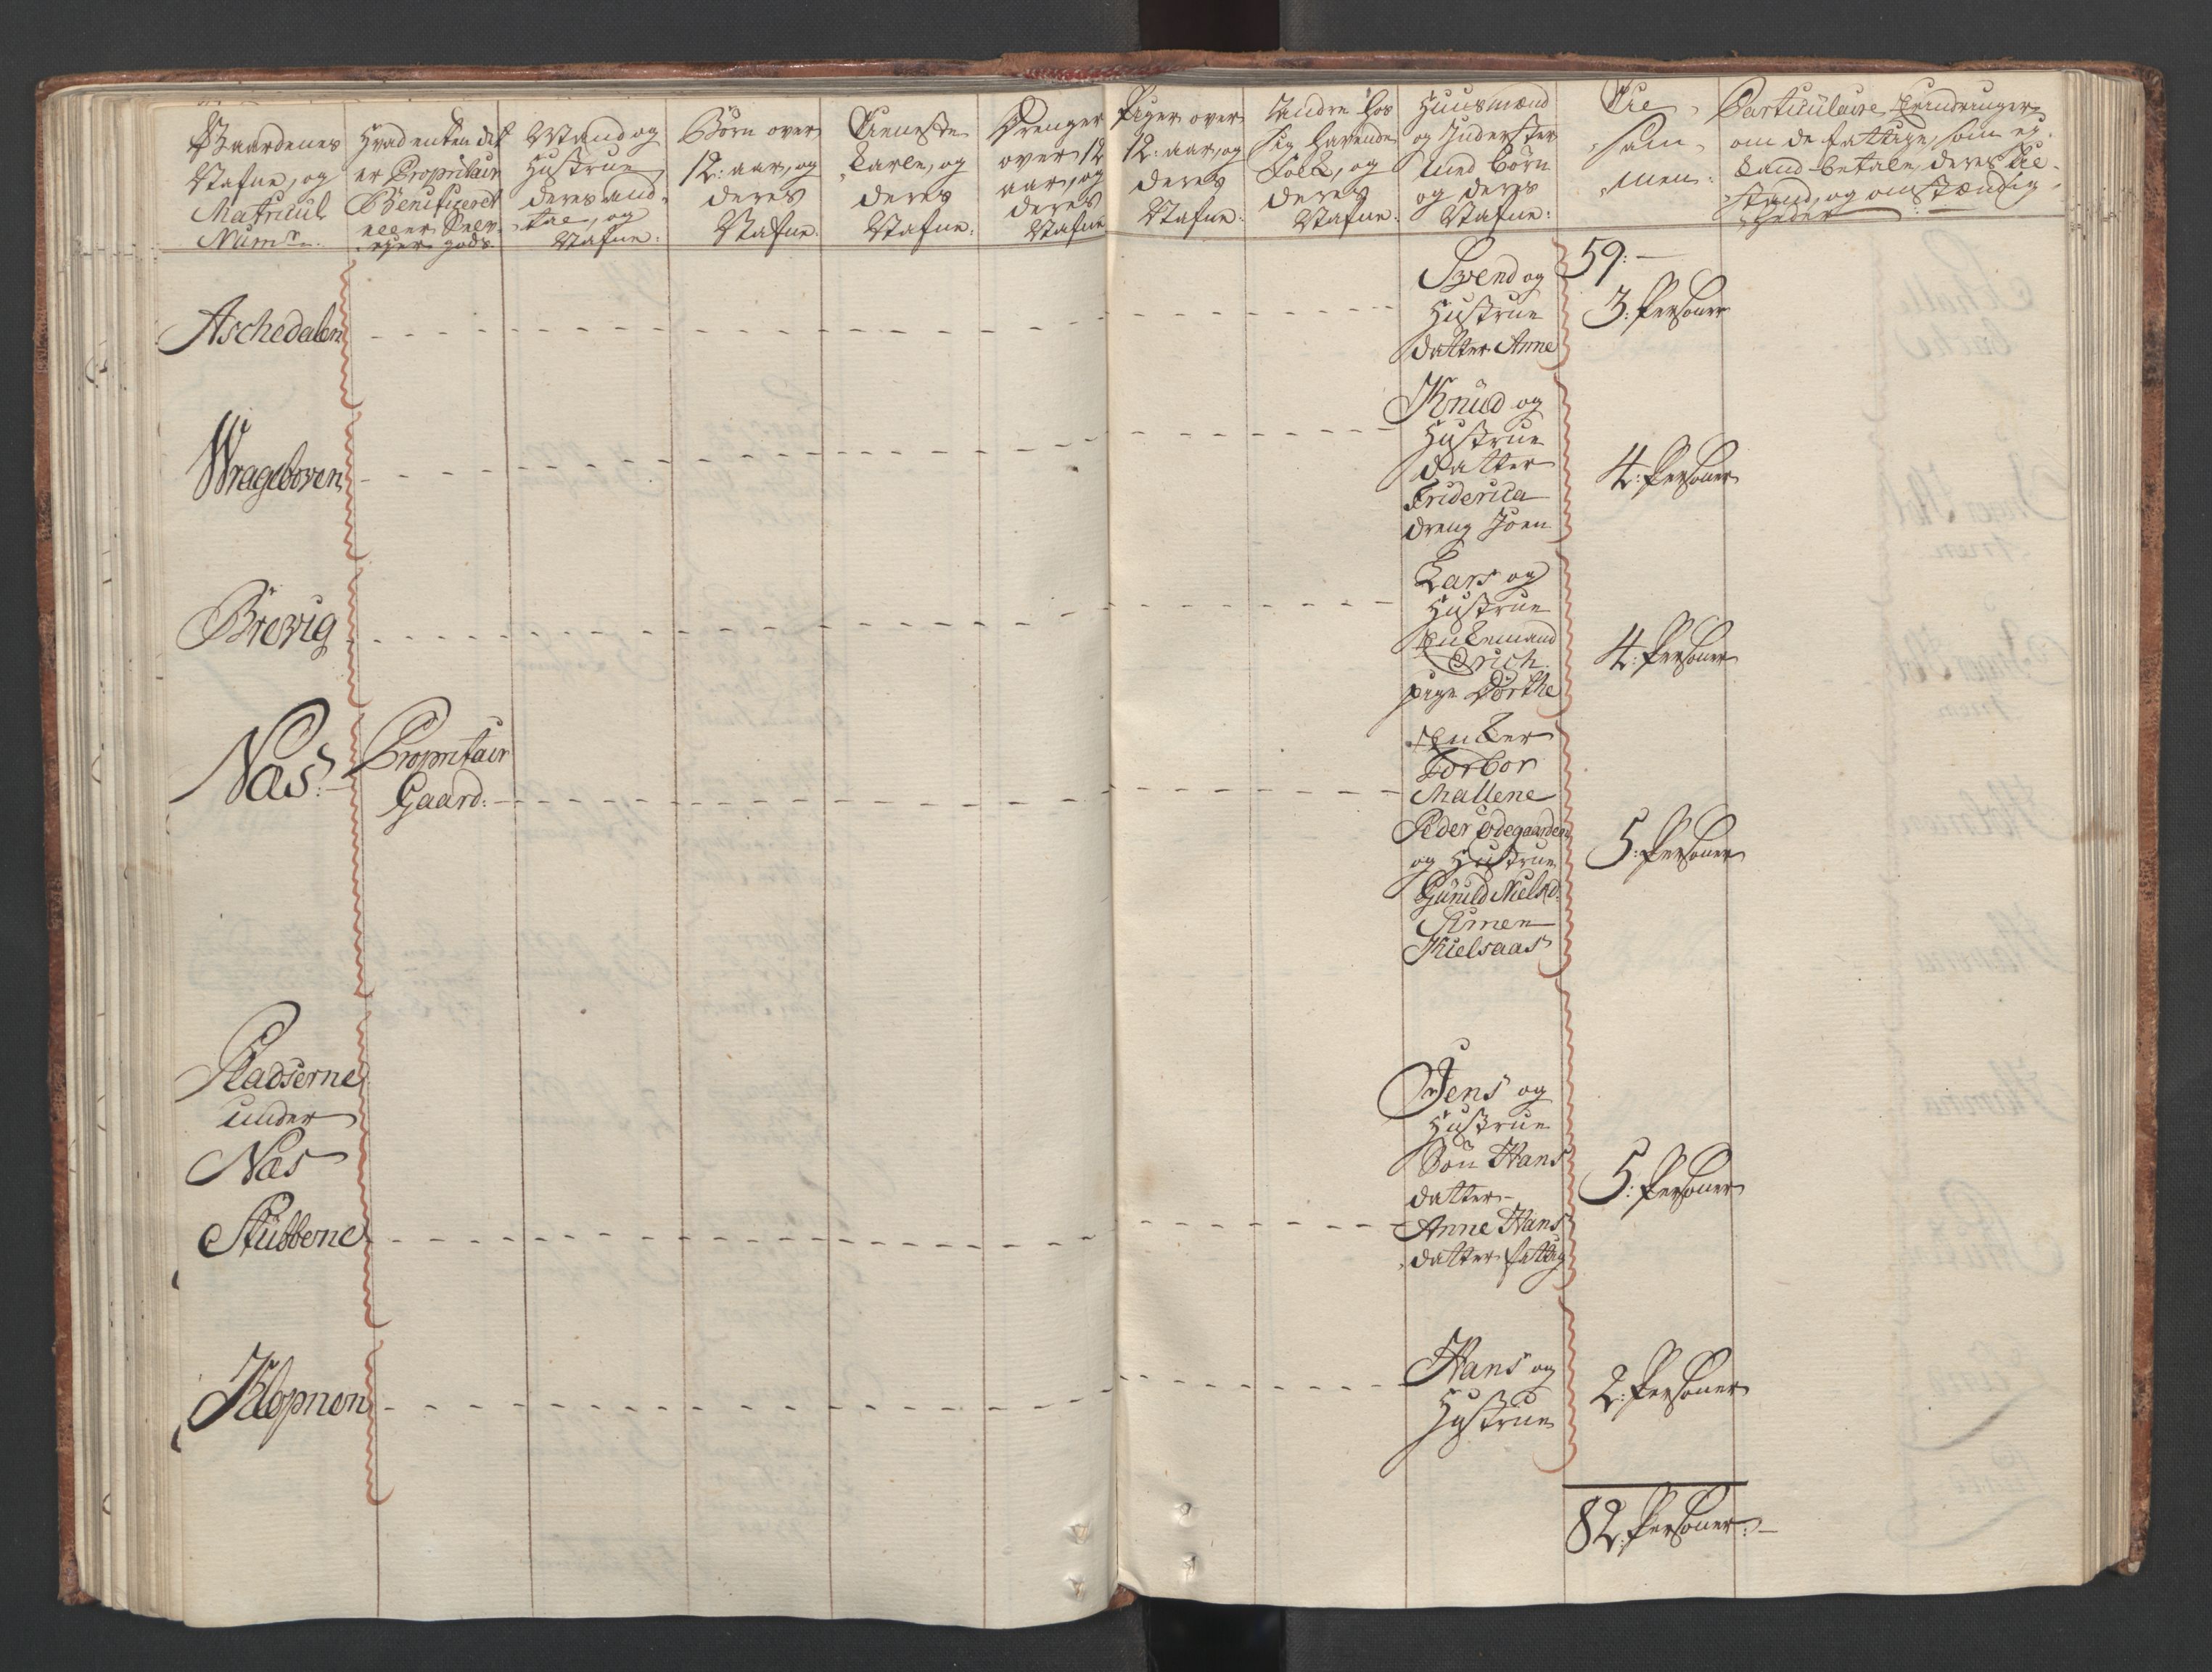 Gaardenes
Nafne, og
Matricul
Numr.
Hvad enten det
er Proprietair
Beneficeret
eller Selv-
ejer gods
Mand og
Hustrue
deres and-
tal, og
Nafne:
Börn over
12: aar, og
deres
Nafne:
Tieneste
Karle, og
deres
Nafne:
Drenger
over 12
aar, og
deres
Nafne
Piger over
12: aar, og
deres
Nafne:
Andre hos
sig havende
Folk, og
deres
Nafne:
Huusmænd
og Inderster
med börn
og deres
Nafne:
Til
sam
men:
Particulaire Erindringer
om de fattige, som ej
kand betale, deres til-
stand, og omstændig-
heder
59:
Aschedalen
Svend og
Hustrue
datter Anne
3: Personer
Wrageboven
Knud og
Hustrue
datter
Friderica
dreng Joen
4: Personer
Brevig
Lars og
Hustrue
Enkemand
Erich
pige Dorthe
4: Personer
Næs:
Propritair
Gaard:
Enker
Torbor
Mallene
Peder Ödegaarden
og Hustrue
Gunild Nielsd:
Simen
Kielsaas
5: Personer
Pladserne
under
Næs
Stubberne
Jens og
Hustrue
Sön Hans
datter
Anne Hans
datter fattig
5: Personer
Klopnen
Hans og
Hustrue
2: Personer
82: Personer: